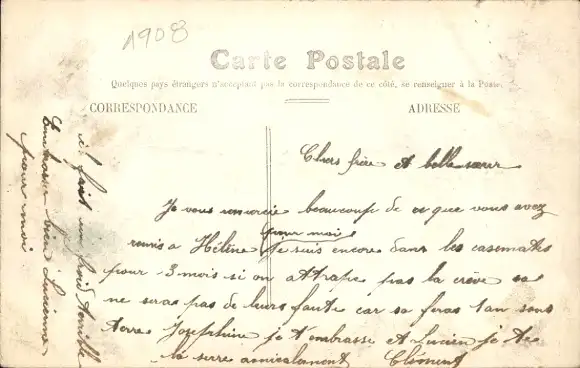 1908
Carte Postale
Quelques pays étrangers n'acceptant pas la correspondance de ce côté, se renseigner à la Poste.
CORRESPONDANCE
ADRESSE
Chers frère et belle sœur
Je vous remercie beaucoup de ce que vous avez
remis a Hélène pour moi je suis encore dans les casemates
pour 3 mois si on attrape pas la crève sa
ne seras pas de leurs faute car sa feras 1 an sous
terre Josephine je t'embrasse et Lucien je te
la serre amicalement Clément
il fait un froid terrible
Embrasser bien Lucienne
pour moi